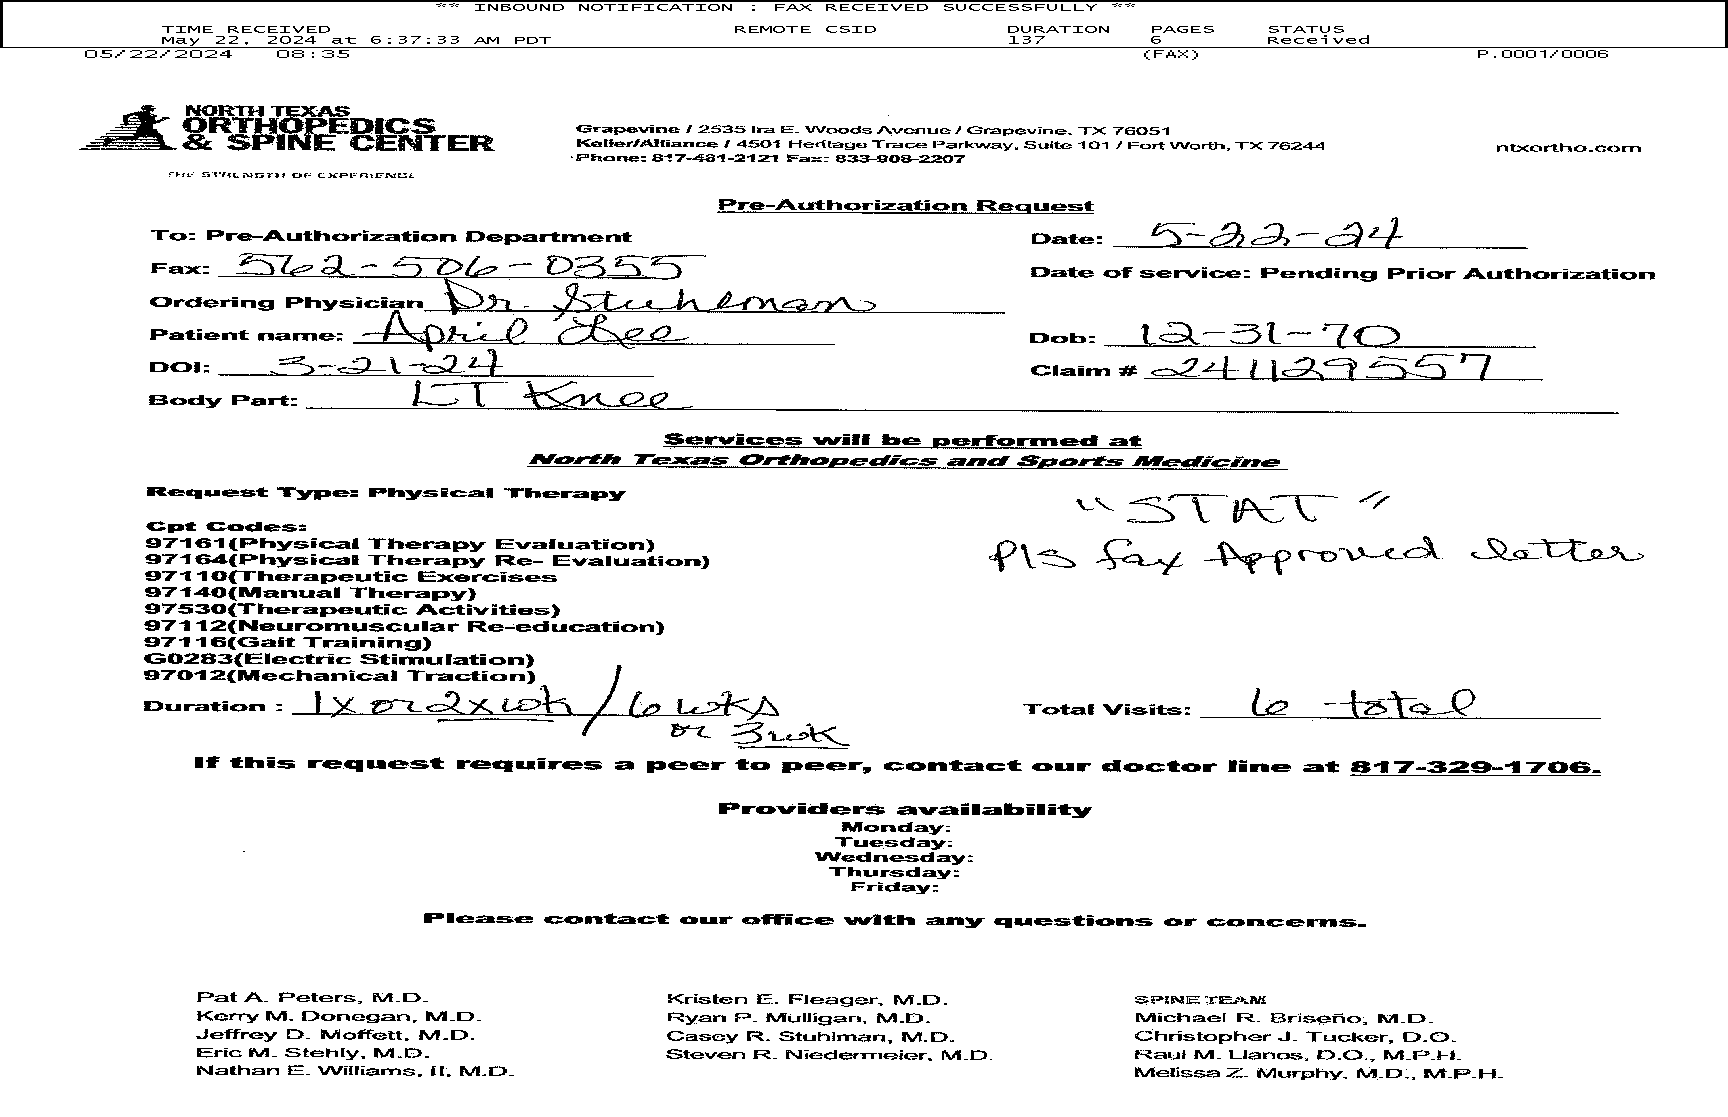 ** INBOUND NOTIFICATION : FAX RECEIVED SUCCESSFULLY **
TIME RECEIVED REMOTE CSID DURATION PAGES STATUS
May 22, 2024 at 6:37:33 AM PDT 137 6 Received
05/22/2024 08:35 (FAX) P.0001/0006
NORTH TEXAS
ORTHOPEDICS
& SPINE CENTER
THE STRENGTH OF EXPERIENCE
Grapevine / 2535 Ira E. Woods Avenue / Grapevine, TX 76051
Keller/Alliance / 4501 Heritage Trace Parkway, Suite 101 / Fort Worth, TX 76244
Phone: 817-481-2121 Fax: 833-908-2207
ntxortho.com
Pre-Authorization Request
To: Pre-Authorization Department Date: 5-22-24
Fax: 562-506-0355 Date of service: Pending Prior Authorization
Ordering Physician Dr. Stuhlman
Patient name: April Lee Dob: 12-31-70
DOI: 3-21-24 Claim # 241129557
Body Part: LT Knee
Services will be performed at
North Texas Orthopedics and Sports Medicine
Request Type: Physical Therapy
"STAT"
Pls fax Approved letter
Cpt Codes:
97161(Physical Therapy Evaluation)
97164(Physical Therapy Re- Evaluation)
97110(Therapeutic Exercises
97140(Manual Therapy)
97530(Therapeutic Activities)
97112(Neuromuscular Re-education)
97116(Gait Training)
G0283(Electric Stimulation)
97012(Mechanical Traction)
Duration : 1x or 2x wk / 6 wks Total Visits: 6 total
or 3wk
If this request requires a peer to peer, contact our doctor line at 817-329-1706.
Providers availability
Monday:
Tuesday:
Wednesday:
Thursday:
Friday:
Please contact our office with any questions or concerns.
Pat A. Peters, M.D.
Kerry M. Donegan, M.D.
Jeffrey D. Moffett, M.D.
Eric M. Stehly, M.D.
Nathan E. Williams, II, M.D.
Kristen E. Fleager, M.D.
Ryan P. Mulligan, M.D.
Casey R. Stuhlman, M.D.
Steven R. Niedermeier, M.D.
SPINE TEAM
Michael R. Briseño, M.D.
Christopher J. Tucker, D.O.
Raul M. Llanos, D.O., M.P.H.
Melissa Z. Murphy, M.D., M.P.H.